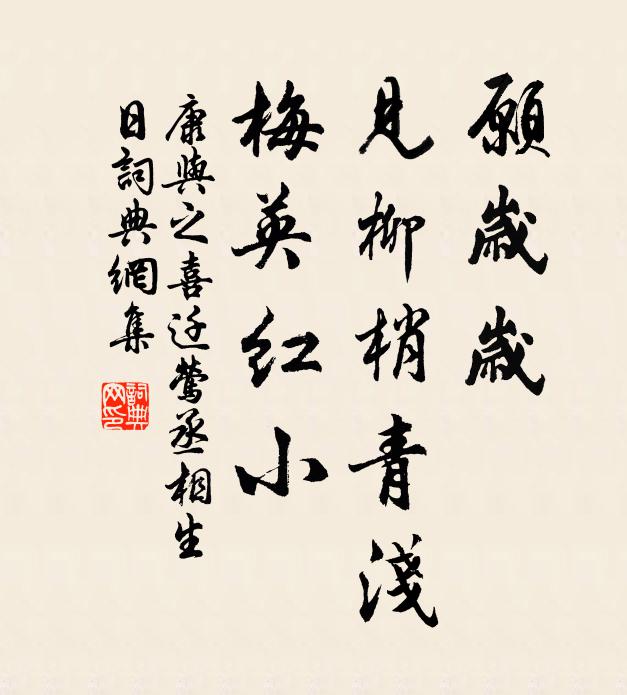 願歲歲
見柳梢青淺
梅英紅小
康與之喜迁鶯丞相生
日詞典網集
詞典網印